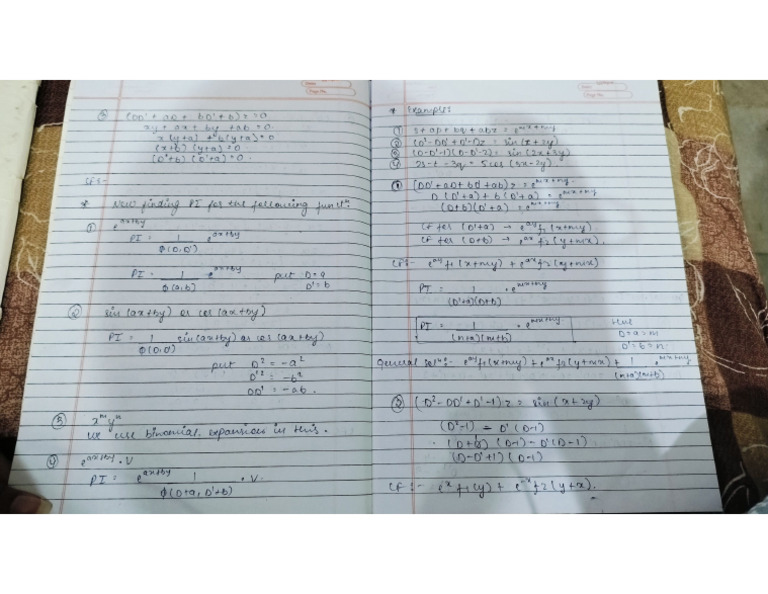 (DD' + aD + bD' + b) z = 0.
xy + ax + by + ab = 0.
x(y+a) + b(y+a) = 0
(x+b) (y+a) = 0
(D'+b) (D'+a) = 0.
CF :-
* Now finding PI for the following funcⁿ:
① e^{ax+by}
PI = 1/φ(D,D') e^{ax+by}
PI = 1/φ(a,b) e^{ax+by} put D = a
D' = b
② sin(ax+by) or cos(ax+by)
PI = 1/φ(D,D') sin(ax+by) or cos(ax+by)
put D² = -a²
D'² = -b²
DD' = -ab.
③ x^m y^n
We use binomial expansion in this.
④ e^{ax+by}. V
PI = e^{ax+by} 1/φ(D+a, D'+b) . V.
* Examples
① s + ap + bq + abz = e^{mx+ny}
② (D² - DD' + D' - 1) z = sin(x+2y)
③ (D-D'-1)(D-D'-2) = sin(2x+3y)
④ 2s - t - 3q = 5 cos(3x-2y).
① [DD' + aD + bD' + ab) z = e^{mx+ny}
D (D'+a) + b (D'+a) = e^{mx+ny}
(D+b)(D'+a) = e^{mx+ny}
CF for (D'+a) → e^{ay} f1 (x+my)
CF for (D+b) → e^{ax} f2 (y+mx).
CF :- e^{ay} f1 (x+my) + e^{ax} f2 (y+mx)
PI = 1/(D'+a)(D+b) . e^{mx+ny}
PI = 1/(n+a)(m+b) . e^{mx+ny} Here
D = a = m
D' = b = n.
General solⁿ :- e^{ay} f1 (x+my) + e^{ax} f2 (y+mx) + 1/(n+a)(m+b) e^{mx+ny}
② (D² - DD' + D' - 1) z = sin(x+2y)
(D²-1) - D' (D-1)
(D-1) - D' (D-1)
(D-D'+1) (D-1)
CF :- e^x f1(y) + f2 (y+x).